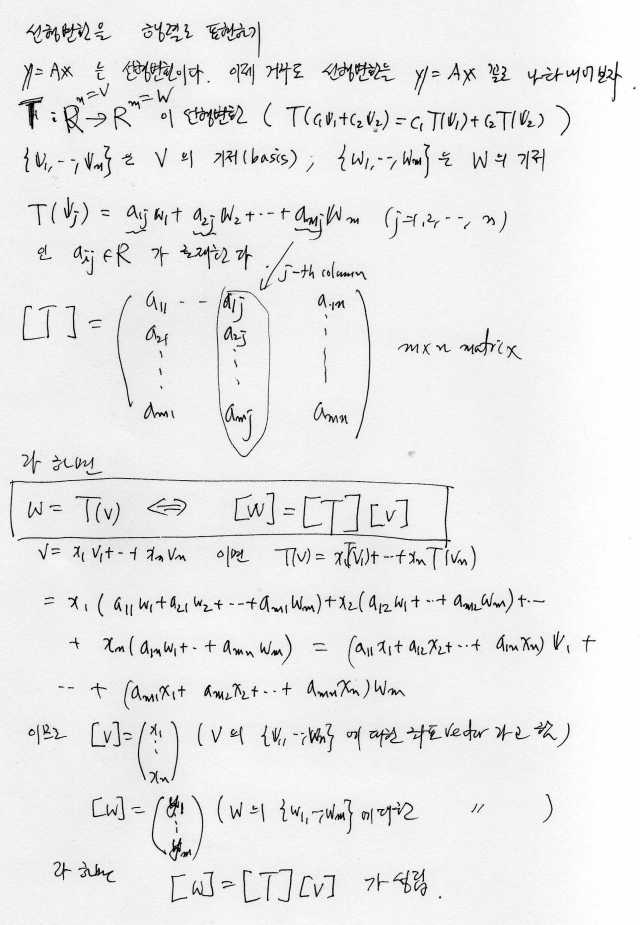 선형변환을 행렬로 표현하기
y = Ax 는 선형변환이다. 이제 거꾸로 선형변환을 y = Ax 꼴로 나타내어보자.
T : Rⁿ=V → Rᵐ=W 이 선형변환 ( T(c₁v₁+c₂v₂) = c₁T(v₁)+c₂T(v₂) )
{v₁, --, vₙ} 은 V 의 기저(basis), {w₁, --, wₘ} 는 W 의 기저
T(vⱼ) = a₁ⱼw₁ + a₂ⱼw₂ + -- + aₘⱼwₘ (j=1,2, --, n)
인 aᵢⱼ ∈ R 가 존재한다
j-th column
[T] = ( a₁₁ -- a₁ⱼ a₁ₙ
a₂₁ a₂ⱼ
aₘ₁ aₘⱼ aₘₙ ) m×n matrix
라 하면
w = T(v) ⇔ [w] = [T][v]
v = x₁v₁+--+xₙvₙ 이면 T(v) = x₁T(v₁)+--+xₙT(vₙ)
= x₁(a₁₁w₁+a₂₁w₂+--+aₘ₁wₘ)+x₂(a₁₂w₁+--+aₘ₂wₘ)+--
+ xₙ(a₁ₙw₁+--+aₘₙwₘ) = (a₁₁x₁+a₁₂x₂+--+a₁ₙxₙ)v₁ +
-- + (aₘ₁x₁+aₘ₂x₂+--+aₘₙxₙ)wₘ
이므로 [v] = (x₁ ⋮ xₙ) (V 의 {v₁, --, vₙ} 에 대한 좌표vector 라고 함)
[w] = (y₁ ⋮ yₘ) (W 의 {w₁, --, wₘ} 에 대한 〃 )
라 하면 [w] = [T][v] 가 성립.